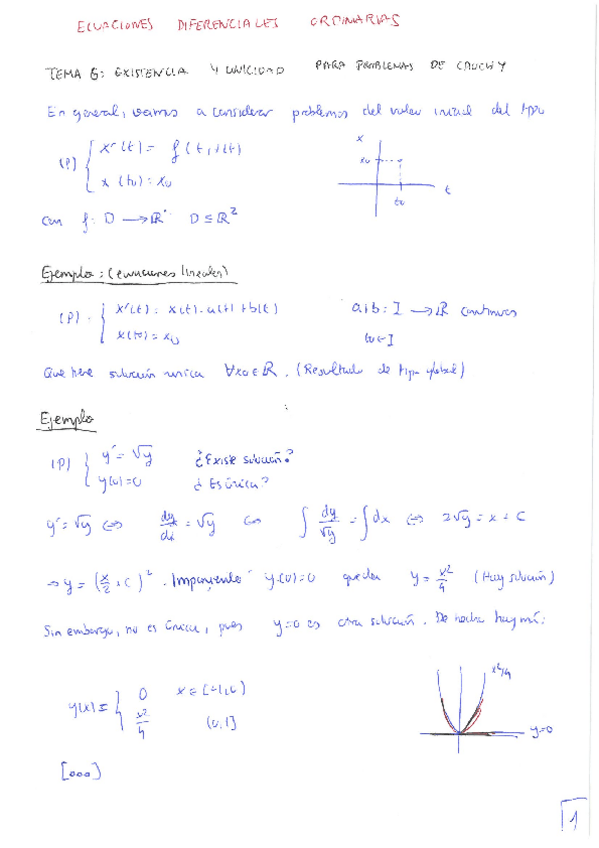 ECUACIONES DIFERENCIALES ORDINARIAS
TEMA 6: EXISTENCIA Y UNICIDAD PARA PROBLEMAS DE CAUCHY
En general, vamos a considerar problemas del valor inicial del tipo
(P) { x'(t) = f(t, x(t))
x(t0) = x0
x
x0
t0
t
Con f: D → R D ⊆ R²
Ejemplo: (ecuaciones lineales)
(P) { x'(t) = x(t)·a(t) + b(t)
x(t0) = x0
a, b: I → R continuas
t0 ∈ I
Que tiene solución única ∀x0 ∈ R. (Resultado de tipo global)
Ejemplo
(P) { y' = √y ¿Existe solución?
y(0) = 0 ¿Es única?
y' = √y ⇔ dy/dx = √y ⇔ ∫ dy/√y = ∫ dx ⇔ 2√y = x + C
→ y = (x/2 + C)². Imponiendo y(0)=0 queda y = x²/4 (Hay solución)
Sin embargo, no es única, pues y=0 es otra solución. De hecho hay más:
y(x) = { 0 x ∈ [-1,0)
x²/4 (0,1]
x²/4
y=0
[ooo]
1